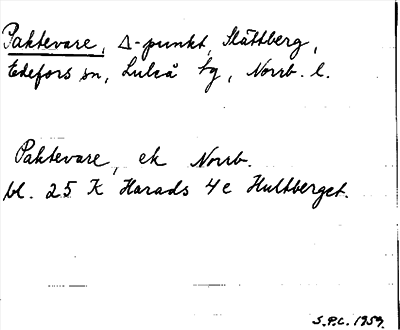 Paktevare, Δ-punkt, Slåttberg,
Edefors sn, Luleå tg, Norrb. l.
Paktevare, ek Norrb.
bl. 25 K Harads 4e Hultberget.
S.P.C. 1959.